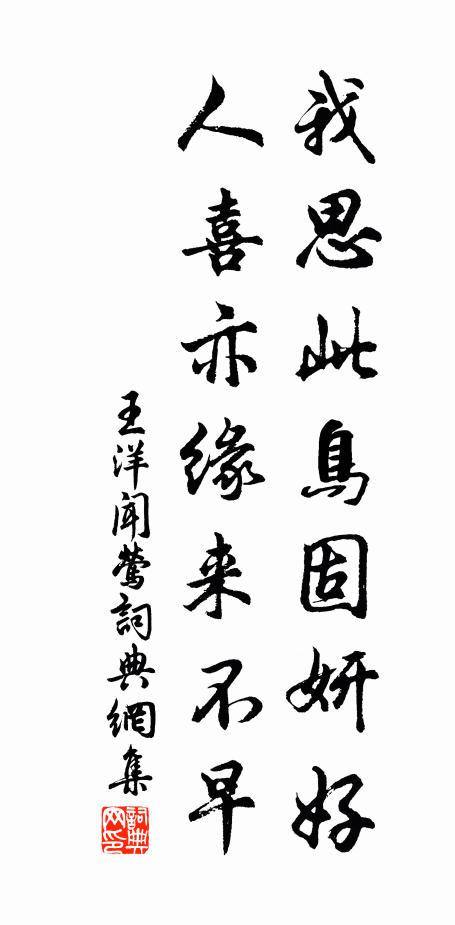 我思此鳥固妍好
人喜亦緣来不早
王洋聞鶯詞典網集
詞典网印